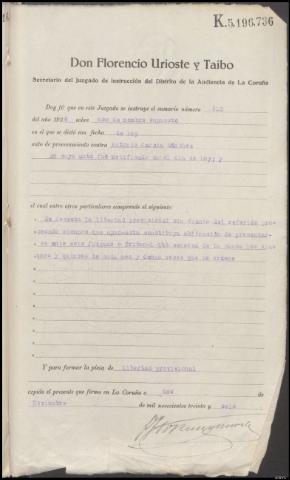 K.5.196.736
Don Florencio Urioste y Taibo
Secretario del Juzgado de instrucción del Distrito de la Audiencia de La Coruña
Doy fé: que en este Juzgado se instruye el sumario número
del año 193 sobre uso de nombre supuesto
en el que se dictó con fecha de hoy
auto de procesamiento contra Antonio García Sánchez
cuyo auto fué notificado en el día de hoy; y
el cual entre otros particulares comprende el siguiente:
Se decreta la libertad provisional sin fianza del referido procesado siempre que
obligación de presentarse
ante este Juzgado o Tribunal que conozca de la causa los días
y quince de cada mes y demás veces que se ordene
Y para formar la pieza de libertad provisional
expido el presente que firmo en La Coruña a dos de
de mil novecientos treinta y seis